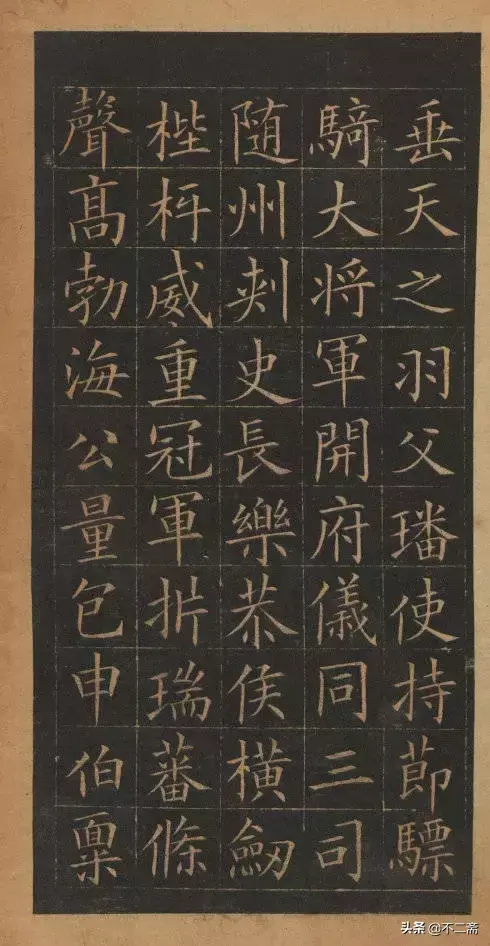 垂天之羽父璠使持莭驃
騎大将軍開府儀同三司
随州刾史長樂恭侯橫劒
梐枑威重冠軍析瑞蕃條
聲髙勃海公量包申伯稟
头条 @不二斋